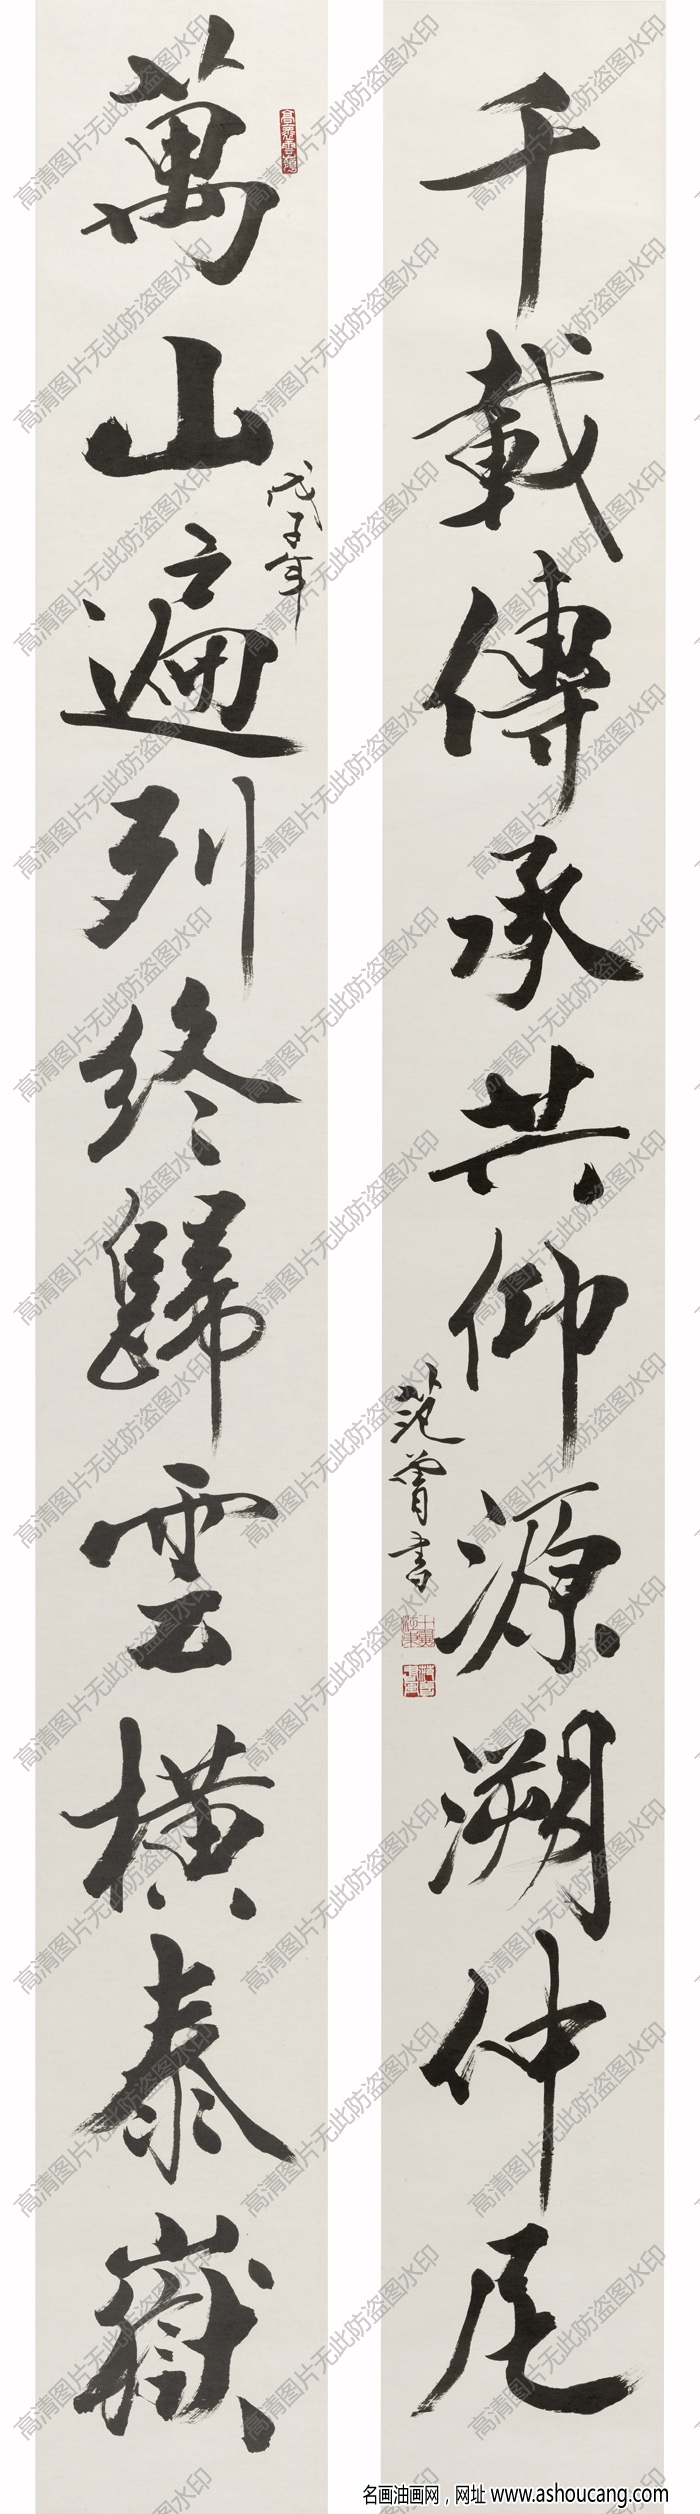 萬山遍列終歸雲橫泰嶽
戊子年
千載傳承共仰源溯仲尼
范曾書
高清图片无此防盗图水印
名画油画网，网址 www.ashoucang.com